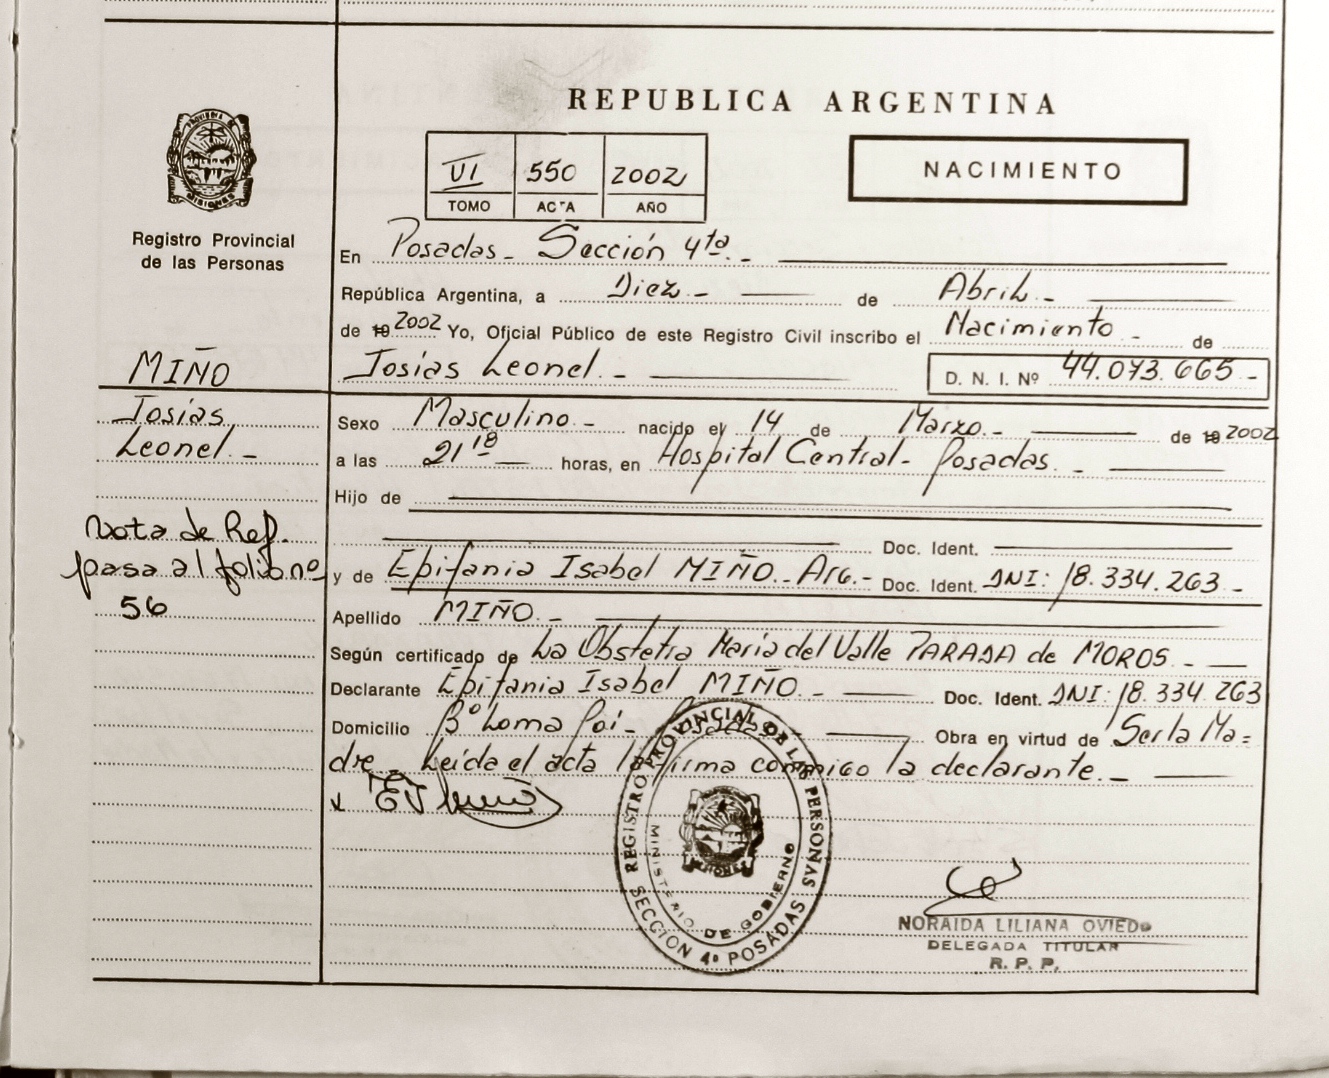 REPUBLICA ARGENTINA
VI 550 2002
TOMO ACTA AÑO
NACIMIENTO
PROVINCIA DE MISIONES
Registro Provincial
de las Personas
En Posadas - Sección 4ta. -
República Argentina, a Diez - de Abril -
de 19 2002 Yo, Oficial Público de este Registro Civil inscribo el Nacimiento - de
MIÑO
Josías Leonel. - D. N. I. Nº 44.073.665 -
Josías
Leonel. -
Sexo Masculino - nacido el 14 de Marzo. - de 19 2002
a las 21 18 horas, en Hospital Central - Posadas. -
Hijo de
Doc. Ident.
Nota de Ref.
pasa al folio nº
56
y de Epifania Isabel MIÑO. Arg. - Doc. Ident. DNI: 18.334.263 -
Apellido MIÑO. -
Según certificado de La Obstetra María del Valle PARADA de MOROS. -
Declarante Epifania Isabel MIÑO. - Doc. Ident. DNI: 18.334.263
Domicilio Bº Loma Poi - Posadas Obra en virtud de Ser la Ma=
dre. Leída el acta la firma conmigo la declarante. -
REGISTRO PROVINCIAL DE LAS PERSONAS
MINISTERIO DE GOBIERNO
SECCION 4ª POSADAS
NORAIDA LILIANA OVIEDO
DELEGADA TITULAR
R. P. P.